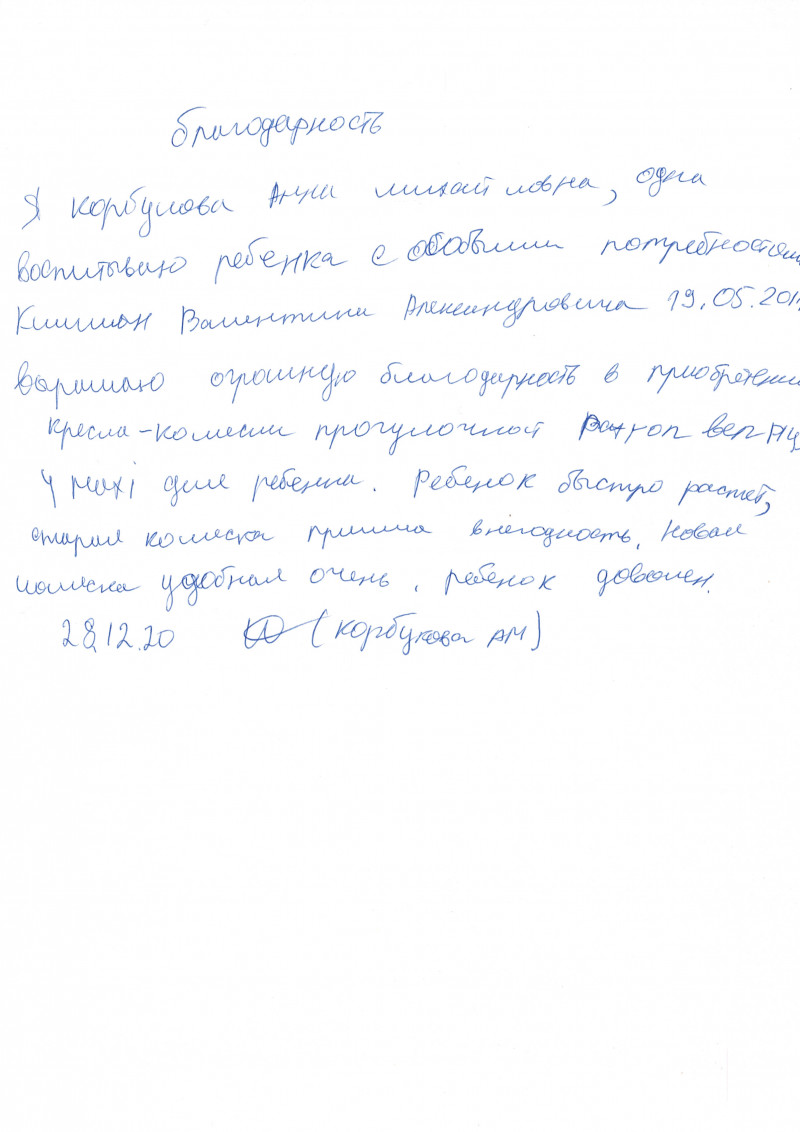 благодарность
Я Корбукова Анна михайловна, одна
воспитываю ребенка с особыми потребностями
Валентина Александровича 19.05.201
выражаю огромную благодарность в приобретении
кресла-коляски прогулочной
для ребенка. Ребенок быстро растет,
старая коляска пришла внегодность. Новая
коляска удобная очень, ребенок доволен.
28.12.20 (Корбукова АМ)